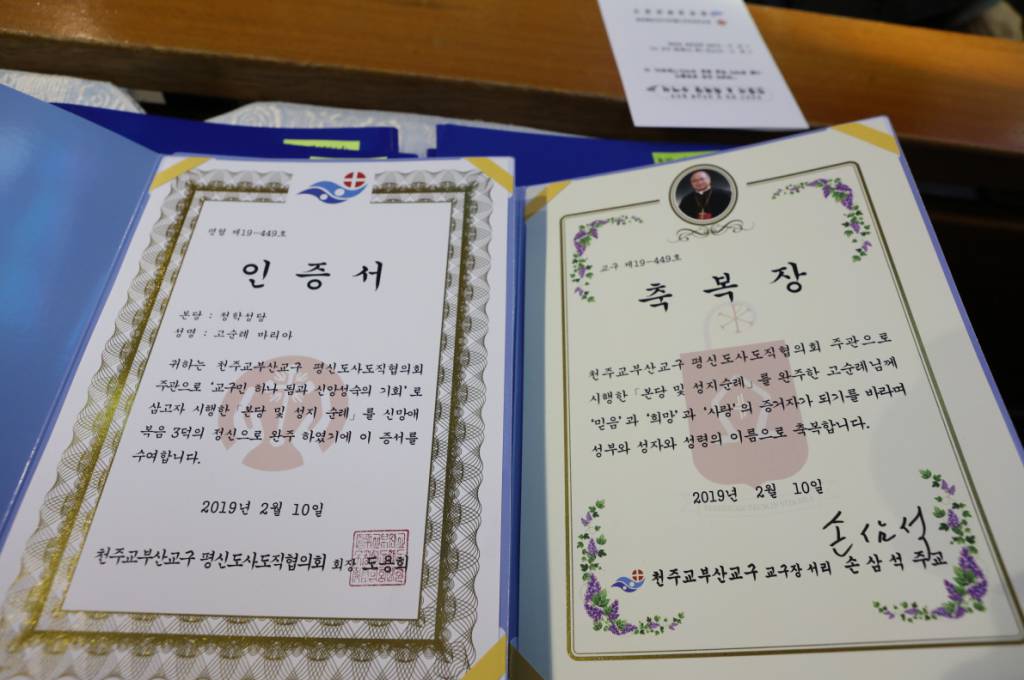 평협 제19-449호
인 증 서
본당 : 청학성당
성명 : 고순례 마리아
귀하는 천주교부산교구 평신도사도직협의회
주관으로 '교구민 하나 됨과 신앙성숙의 기회'로
삼고자 시행한「본당 및 성지 순례」를 신망애
복음 3덕의 정신으로 완주 하였기에 이 증서를
수여합니다.
2019년 2월 10일
천주교부산교구 평신도사도직협의회 회장 도용희
교구 제19-449호
축 복 장
천주교부산교구 평신도사도직협의회 주관으로
시행한「본당 및 성지순례」를 완주한 고순례님께
'믿음'과 '희망'과 '사랑'의 증거자가 되기를 바라며
성부와 성자와 성령의 이름으로 축복합니다.
2019년 2월 10일
손삼석
천주교부산교구 교구장 서리 손 삼 석 주교